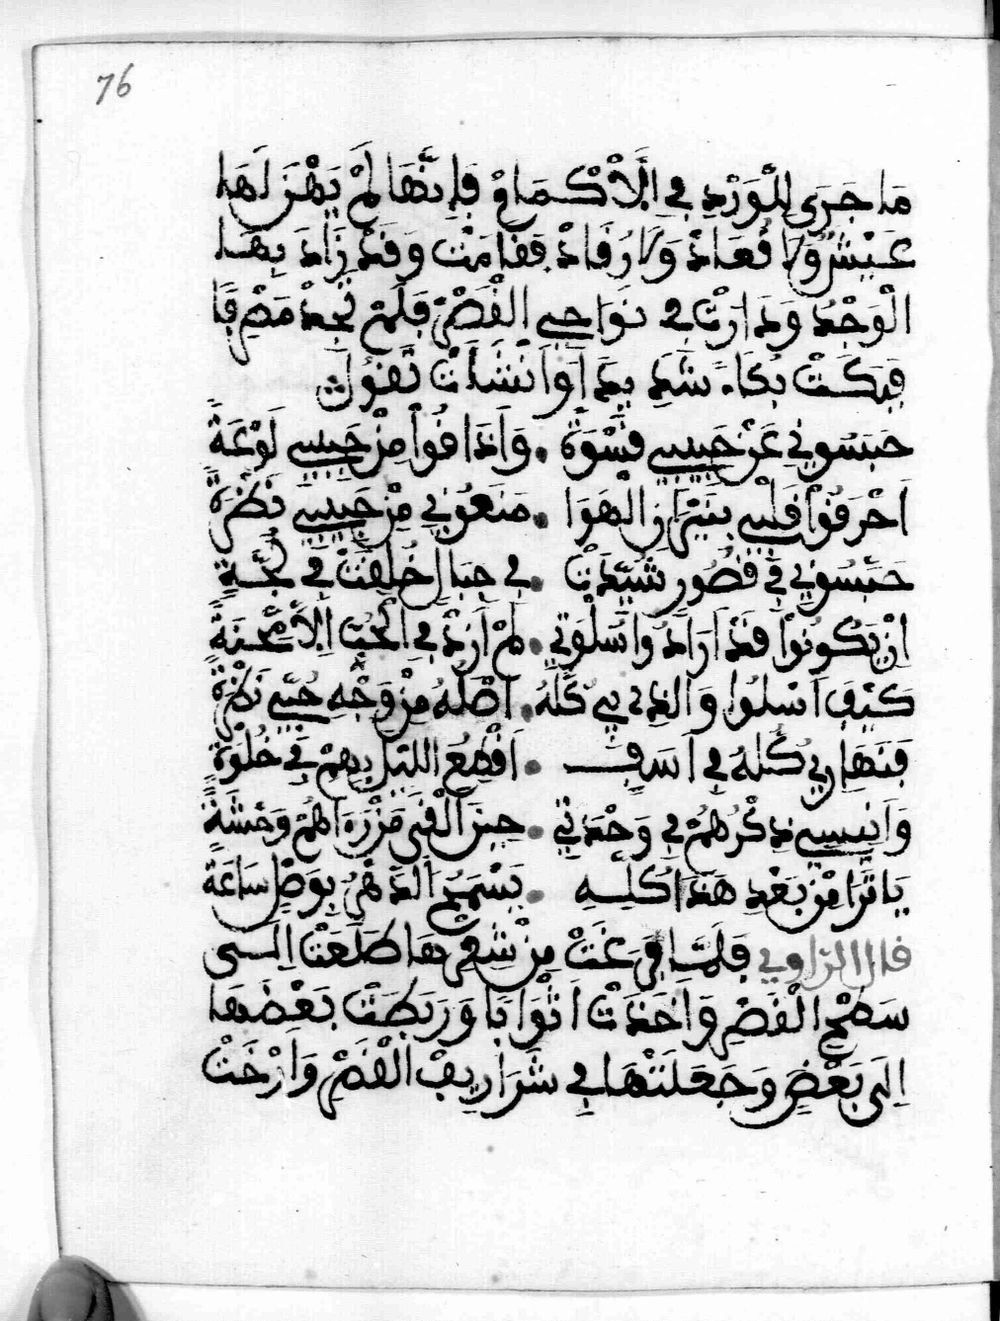 76
مَا جَرَى لِلْوَرْدِ فِي اِلَاكْمَامْ فَإِنَّهَا لَمْ يَهْنَ لَهَا
عَيْشٌ وَلَا قُعَادْ وَلَا رُقَادْ فَقَامَتْ وَقَدْ زَادَ بِهَا
الْوَجْدُ وَدَارَتْ فِي نَوَاحِي الْقَصْرِ فَلَمْ تَجِدْ مَصْرِفَا
فَبَكَتْ بُكَاءً شَدِيدًا وَانْشَأَتْ تَقُولُ
حَبَسُونِي عَنْ حَبِيبِي قَسْوَةً . وَأَذَاقُوا مِنْ حَبِيبِي لَوْعَةً
اَحْرَقُوا قَلْبِي بِنِيرَانِ الْهَوَا . مَنَعُونِي مِنْ حَبِيبِي نَظْرَةً
حَبَسُونِي فِي قُصُورٍ شُيِّدَتْ . فِي جِبَالٍ خُلِقَتْ فِي لُجَّةٍ
اِنْ يَكُونُوا قَدْ اَرَادُوا سَلْوَتِي . لَمْ اَزِدْ فِي الْحُبِّ اِلَّا مِحْنَةً
كَيْفَ اَسْلُوا وَالَّذِي بِي كُلُّهُ . اَصْلُهُ مِنْ وَجْهِ حُبِّي نَظْرَةً
فَنَهَارِي كُلُّهُ فِي اَسَفٍ . اَقْطَعُ اللَّيْلَ بِهِمْ فِي خَلْوَةٍ
وَاَنِيسِي ذِكْرُهُمْ فِي وَحْدَتِي . حِينَ اَلْقَى مَزْرَاهُمْ وَحْشَةً
يَا تَرَا مِنْ بَعْدِ هَذَا كُلِّهِ . يَسْمَحُ الدَّهْرُ بِوَصْلٍ سَاعَةً
قال الراوي فَلَمَّا فَرَغَتْ مِنْ شِعْرِهَا طَلَعَتْ اِلَى
سَطْحِ الْقَصْرِ وَاَخَذَتْ اَثْوَابًا وَرَبَطَتْ بَعْضَهَا
اِلَى بَعْضٍ وَجَعَلَتْهَا فِي شَرَارِيفِ الْقَصْرِ وَاَرْخَتْ